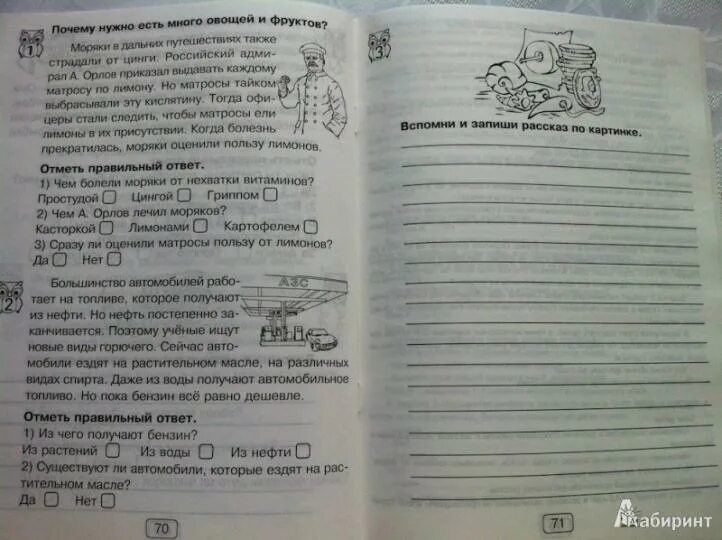 Почему нужно есть много овощей и фруктов?
1
Моряки в дальних путешествиях также
страдали от цинги. Российский адми-
рал А. Орлов приказал выдавать каждому
матросу по лимону. Но матросы тайком
выбрасывали эту кислятину. Тогда офи-
церы стали следить, чтобы матросы ели
лимоны в их присутствии. Когда болезнь
прекратилась, моряки оценили пользу лимонов.
Отметь правильный ответ.
1) Чем болели моряки от нехватки витаминов?
Простудой Цингой Гриппом
2) Чем А. Орлов лечил моряков?
Касторкой Лимонами Картофелем
3) Сразу ли оценили матросы пользу от лимонов?
Да Нет
2
АЗС
Большинство автомобилей рабо-
тает на топливе, которое получают
из нефти. Но нефть постепенно за-
канчивается. Поэтому учёные ищут
новые виды горючего. Сейчас авто-
мобили ездят на растительном масле, на различных
видах спирта. Даже из воды получают автомобильное
топливо. Но пока бензин всё равно дешевле.
Отметь правильный ответ.
1) Из чего получают бензин?
Из растений Из воды Из нефти
2) Существуют ли автомобили, которые ездят на рас-
тительном масле?
Да Нет
70
3
Вспомни и запиши рассказ по картинке.
71
Лабиринт